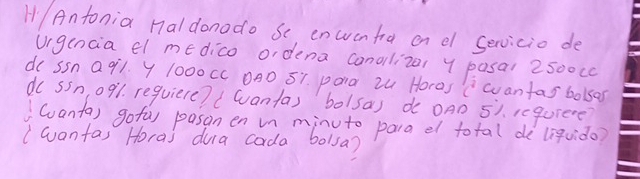 H/Antonia Maldonado se encuentra en el servicio de
urgencia el medico ordena canalizar y pasar 2500cc
de ssn 0.9%. y 1000cc DAD 5%. para 24 Horas ¿cuantas bolsas
de ssn, 0.9%. requiere? ¿cuantas bolsas de DAD 5%. requiere?
¿cuantas gotas pasan en un minuto para el total de liquido?
¿cuantas Horas dura cada bolsa?